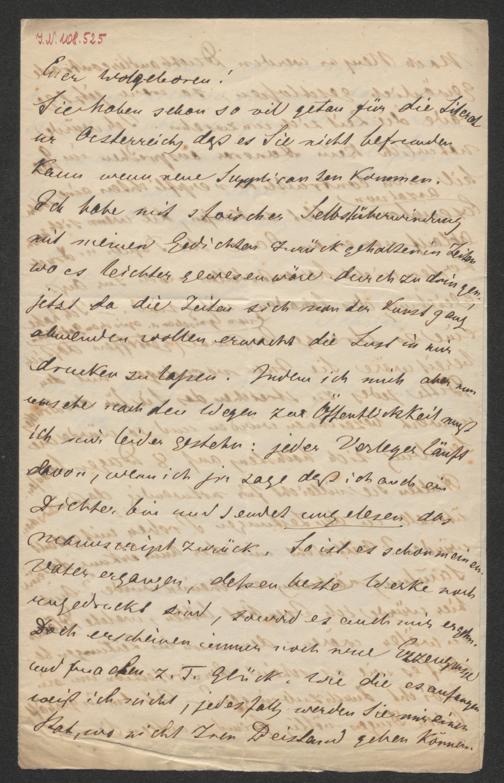 I.N. 108.525
Euer Wolgeboren!
Sie haben schon so vil getan für die Literat
ur Oesterreichs daß es Sie nicht befremden
kann wenn neue Supplicanten kommen.
Ich habe mit stoischer Selbstüberwindung
mit meinen Gedichten zurückgehalten in Zeiten
wo es leichter gewesen wäre durchzudringen.
jetzt da die Zeiten sich von der Kunst ganz
abwenden wollen erwacht die Lust in mir
drucken zu laßen. Indem ich mich aber nun
umsehe nach den Wegen zur Öffentlichkeit muß
ich mir leider gestehn: jeder Verleger läuft
davon, wenn ich jm sage daß ich auch ein
Dichter bin und sendet ungelesen das
Manuscript zurück. So ist es schon meinem
Vater ergangen, deßen beste Werke noch
ungedruckt sind, so wird es auch mir ergehn.
Doch erscheinen immer noch neue Erzeugniße
und machen z. T. Glück. Wie die es anfangen
weiß ich nicht, jedesfalls werden Sie mir einen
Rat, wo nicht Iren Beistand geben können.